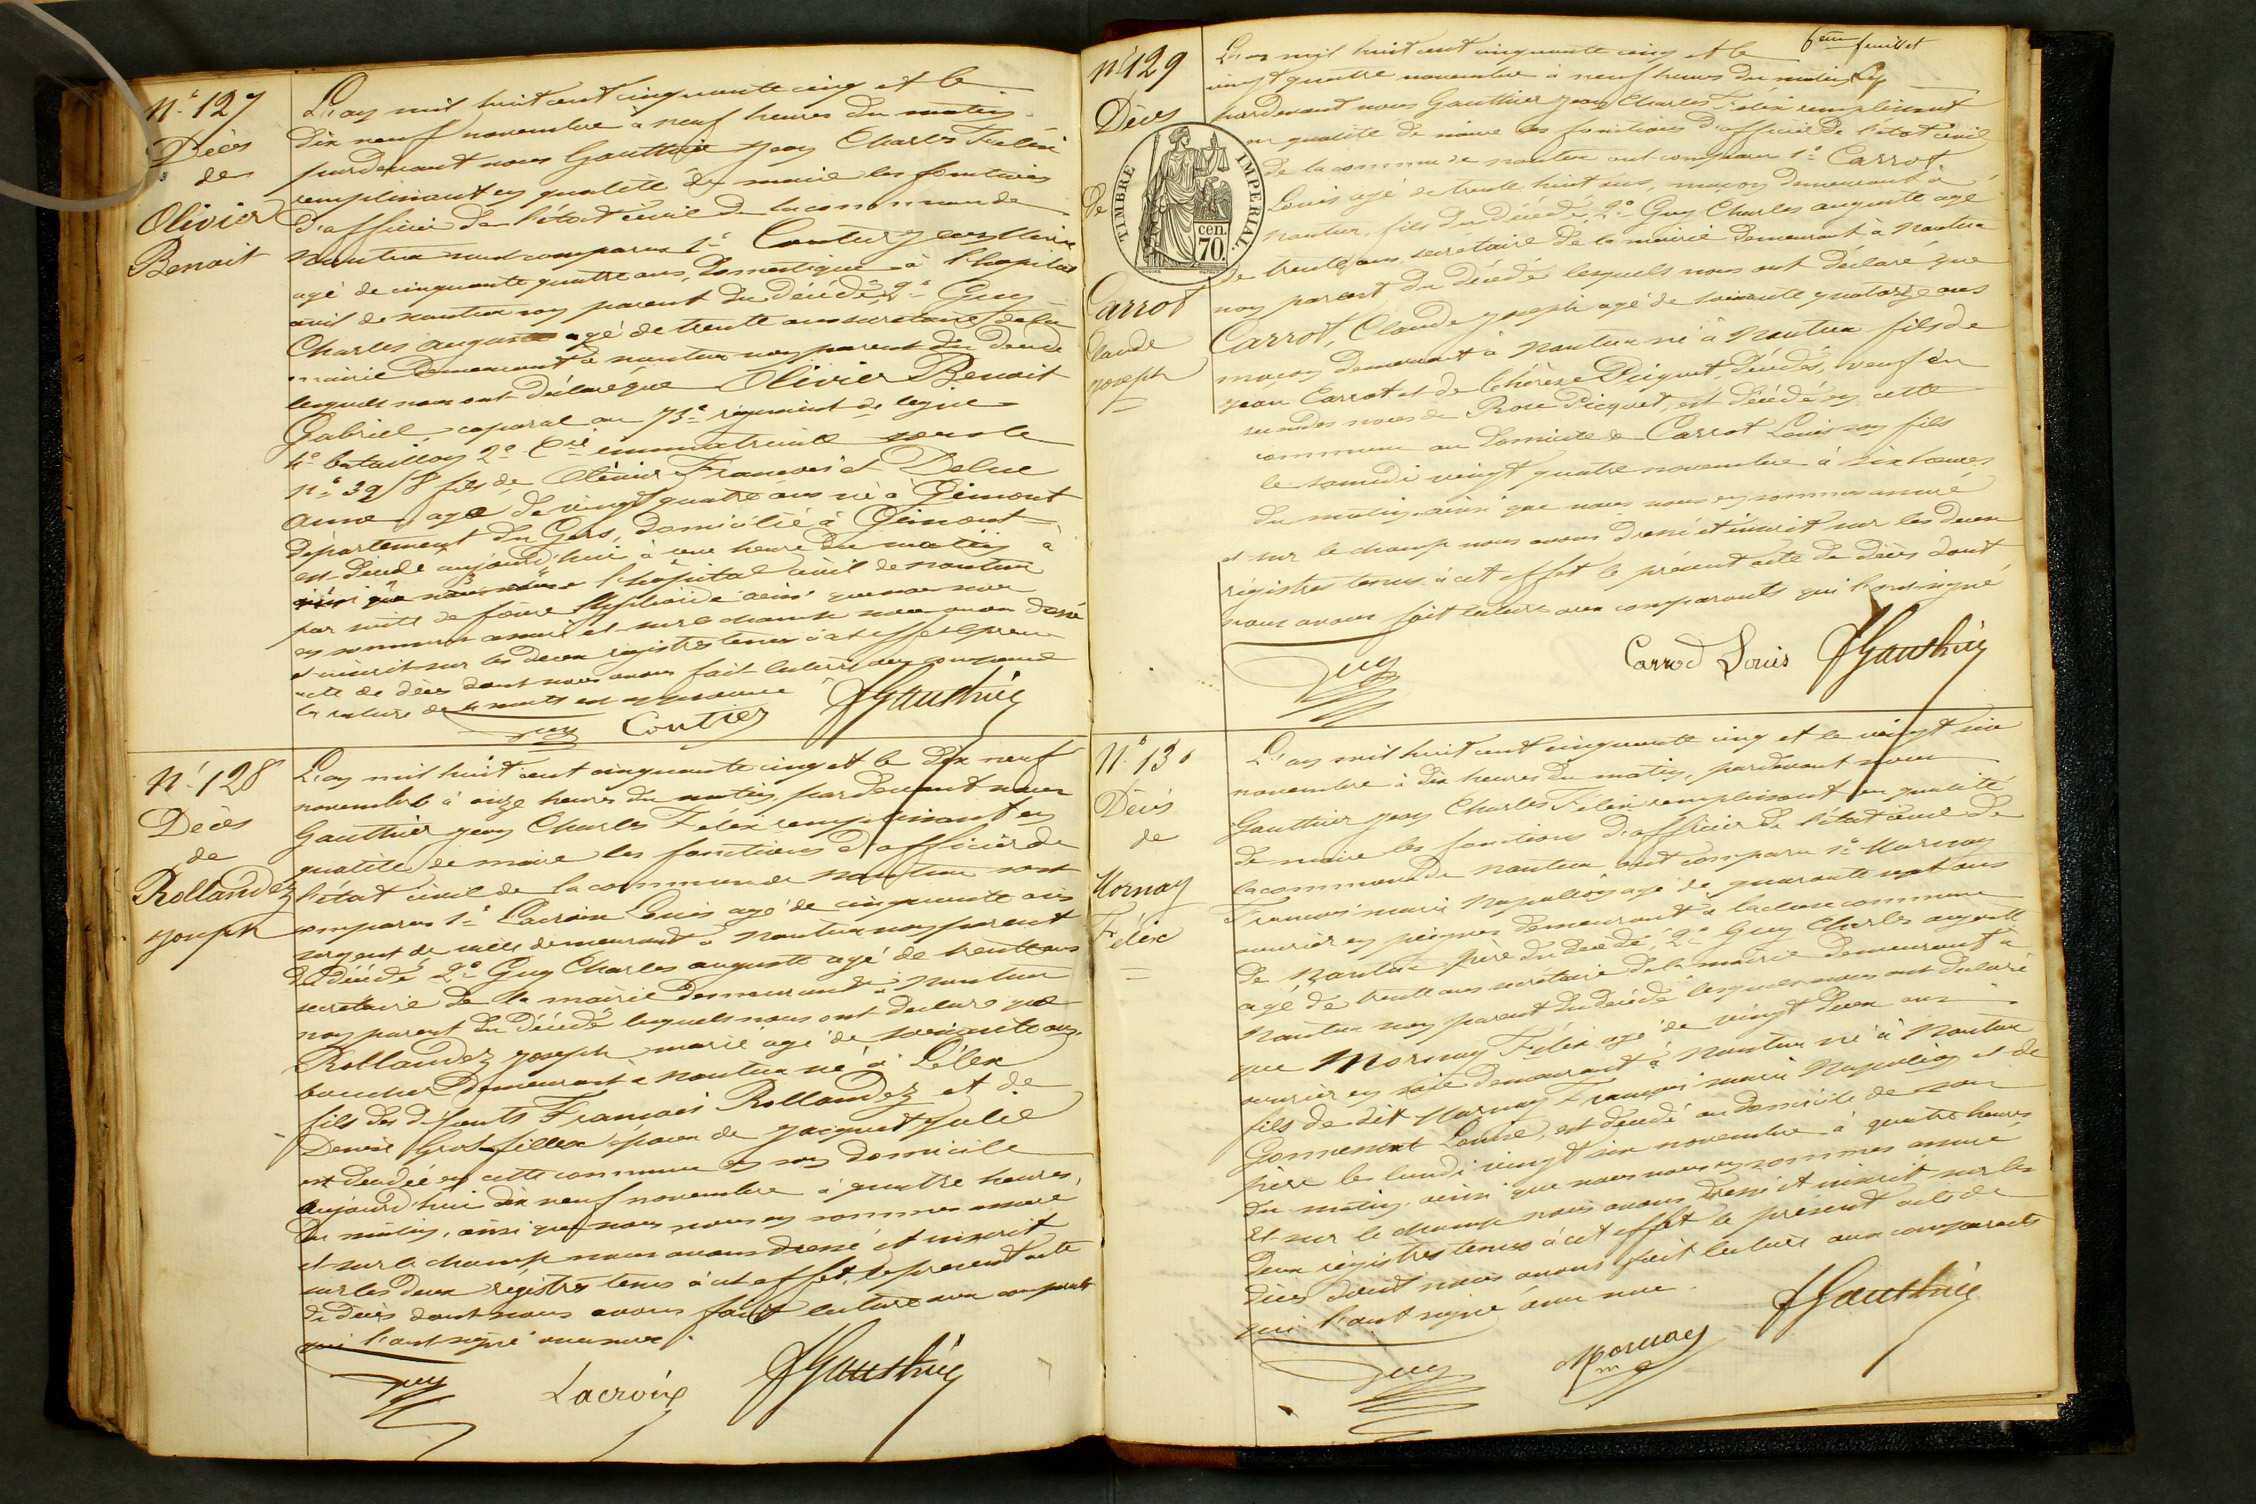 N.° 127
Décès
de
Olivier
Benoit
L'an mil huit cent cinquante cinq et le
dix neuf novembre à neuf heures du matin
pardevant nous Gauthier Jean Charles Félix
remplissant en qualité de maire les fonctions
d'officier de l'état civil de la commune de
Nantua sont comparus 1° Coutier Jean
agé de cinquante quatre ans, domestique à l'hopital
civil de Nantua non parent du décédé 2° Guy
Charles auguste agé de trente ans secrétaire de la
mairie demeurant à nantua non parent du décédé
lesquels nous ont déclaré que Olivier Benoit
Gabriel caporal au 73e régiment de ligne
4e bataillon 2e Cie immatriculé sous le
n° 3918 fils de Olivier François et Delue
anne, agé de vingt quatre ans né à Gimont
département du Gers, domicilié à Gimont
est décédé aujourd'hui à une heure du matin à
l'hopital civil de nantua
par suite de fièvre typhoïde ainsi que nous nous
en sommes assuré et sur le champ nous avons dressé
et inscrit sur les deux registres tenus à cet effet le présent
acte de décès dont nous avons fait lecture aux comparants
la rature de mots est approuvée
Guy Coutier JGauthier
N.° 128
Décès
de
Rollandez
Joseph
L'an mil huit cent cinquante cinq et le dix neuf
novembre à onze heures du matin, pardevant nous
Gauthier Jean Charles Félix remplissant en
qualité de maire les fonctions d'officier de
l'état civil de la commune de Nantua sont
comparus 1° Lacroix Louis agé de cinquante ans
sergent de ville demeurant à Nantua non parent
du décédé 2° Guy Charles auguste agé de trente ans
secrétaire de la mairie demeurant à Nantua
non parent du décédé lesquels nous ont déclaré que
Rollandez Joseph marié agé de soixante ans,
boucher demeurant à Nantua né à Lélex
fils des défunts François Rollandez et de
Denise Grosfillex époux de Jacquet Julie
est décédé en cette commune en son domicile
aujourd'hui dix neuf novembre à quatre heures,
du matin, ainsi que nous nous en sommes assuré
et sur le champ nous avons dressé et inscrit
sur les deux registres tenus à cet effet, le présent acte
de décès dont nous avons fait lecture aux comparants
qui l'ont signé avec nous.
Guy Lacroix JGauthier
6eme feuillet
N° 129
Décès
de
Carrot
Claude
Joseph
TIMBRE IMPERIAL.
cen.
70.
L'an mil huit cent cinquante cinq et le
vingt quatre novembre à neuf heures du matin
pardevant nous Gauthier Jean Charles Félix remplissant
en qualité de maire les fonctions d'officier de l'état civil
de la commune de nantua ont comparu 1° Carrot
Louis agé de trente huit ans, maçon demeurant à
Nantua, fils du décédé, 2° Guy Charles auguste agé
de trente ans secrétaire de la mairie demeurant à Nantua
non parent du décédé lesquels nous ont déclaré que
Carrot, Claude Joseph agé de soixante quatorze ans
maçon demeurant à Nantua né à Nantua fils de
Jean Carrot et de Thérèse Picquet, décédés, veuf en
secondes noces de Rose Picquet, est décédé en cette
commune au domicile de Carrot Louis son fils
le samedi vingt quatre novembre à six heures
du matin, ainsi que nous nous en sommes assuré
et sur le champ nous avons dressé et inscrit sur les deux
régistres tenus à cet effet le présent acte de décès dont
nous avons fait lecture aux comparants qui l'ont signé
Guy Carrod Louis JGauthier
N° 130
Décès
de
Mornay
Félix
L'an mil huit cent cinquante cinq et le vingt six
novembre à dix heures du matin, pardevant nous
Gauthier Jean Charles Félix remplissant en qualité
de maire les fonctions d'officier de l'état civil de
la commune de nantua ont comparu 1° Mornay
François marie Napoléon agé de quarante sept ans
ouvrier en peignes demeurant à la commune
de Nantua père du décédé, 2° Guy Charles auguste
agé de trente ans secrétaire de la mairie demeurant à
Nantua non parent du décédé lesquels nous ont déclaré
que Mornay Félix agé de vingt deux ans
ouvrier en soie demeurant à Nantua né à Nantua
fils de dit Mornay François marie Napoléon et de
Louise, est décédé au domicile de son
père le lundi vingt six novembre à quatre heures
du matin, ainsi que nous nous en sommes assuré,
Et sur le champ nous avons dressé et inscrit sur les
deux registres tenus à cet effet le présent acte de
décès dont nous avons fait lecture aux comparants
qui l'ont signé avec nous.
Guy Mornay JGauthier